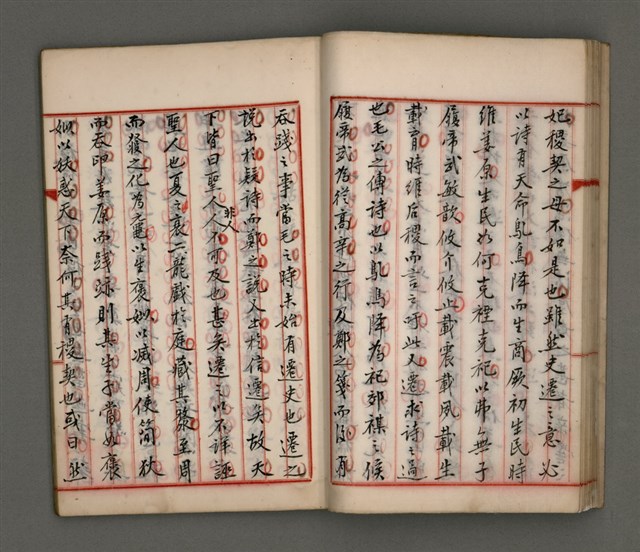 妃稷契之母不如是也雖然史遷之意必
以詩有天命鳦鳥降而生商厥初生民時
維姜原生民如何克禋克祀以弗無子
履帝武敏歆攸介攸止載震載夙載生
載育時維后稷而言之吁此又遷求詩之過
也毛公之傳詩也以鳦鳥降為祀郊禖之候
履帝武為從高辛之行及鄭之箋而後有
吞踐之事當毛之時未始有遷史也遷之
說出於疑詩而鄭之說又出於信遷矣故天
下皆曰聖人非人人不可及也甚矣遷之以不祥誣
聖人也夏之衰二龍戲於庭藏其漦至周
而發之化為黿以生褒姒以滅周使簡狄
而吞卵姜原而踐跡則其生子當如褒
姒以妖惑天下奈何其有稷契也或曰然